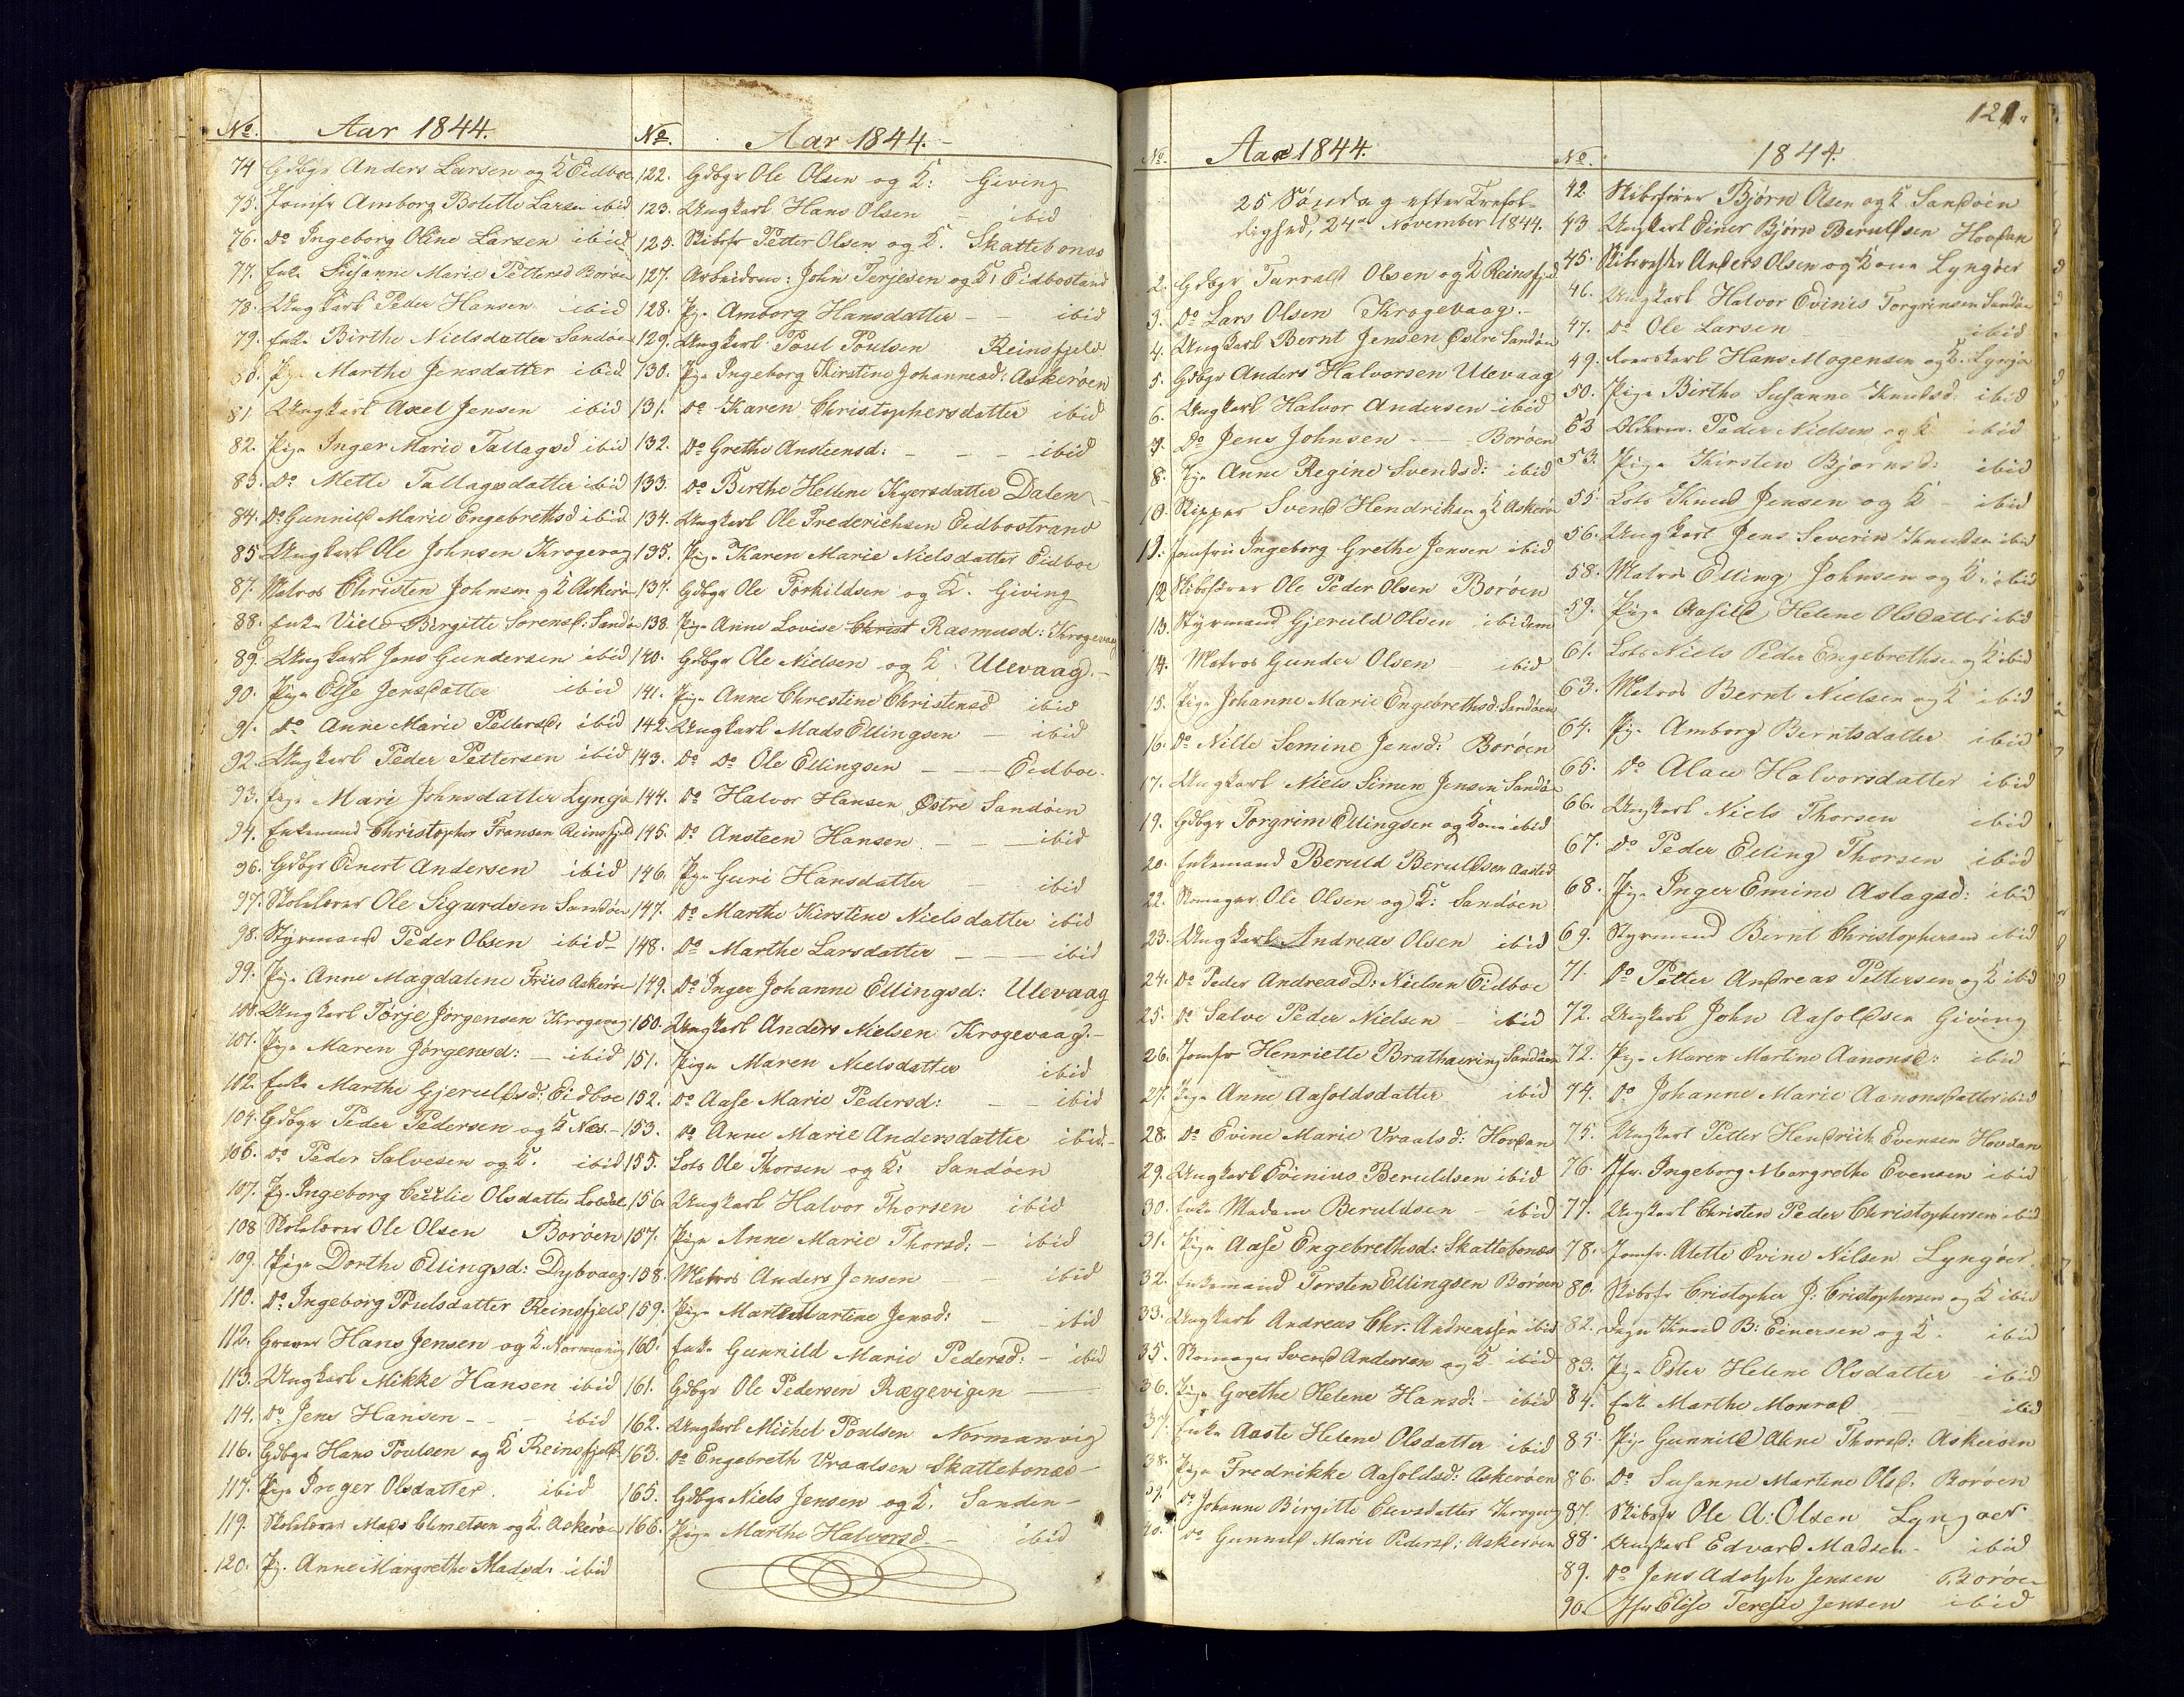 No. Aar 1844.
74 Gdbgr Anders Larsen og K Eidboe
75. Jomfr Amborg Bolette Larsen ibid
76. Do Ingeborg Oline Larsen ibid
77. Enke Susanne Marie Pettersd Borøen
78. Ungkarl Peder Hansen ibid
79. Enke Birthe Nielsdatter Sandøen
80. Pige Marthe Jensdatter ibid
81 Ungkarl Axel Jensen ibid
82. Pige Inger Marie Tallagsd ibid
83. Do Mette Tallagsdatter ibid
84. Do Gunnild Marie Engebrethsd ibid
85 Ungkarl Ole Johnsen Krogevag
87. Matros Christen Johnsen og K Askerø
88. Enke Birgitte Sørensd: Sandø
89. Ungkarl Jens Gundersen ibid
90. Pige Else Jensdatter ibid
91. Do Anne Marie Pettersd: ibid
92. Ungkarl Peder Pettersen ibid
93. Pige Mari Johnsdatter Lyngø
94. Enkemand Christopher Fransen Reinsfjeld
96. Gdbgr Einert Andersen ibid
97. Skolelærer Ole Sigurdsen Sandøen
98. Styrmand Peder Olsen ibid
99. Pige Anne Magdalene Friis Askerøe
100. Ungkarl Tørje Jørgensen Krogevag
101. Pige Maren Jørgensd: - ibid
102. Enke Marthe Gjeruldsd: Eidboe
104. Gdbgr Peder Pedersen og K Næs -
106. Do Peder Salvesen og K. ibid
107. Pg. Ingeborg Cecilie Olsdatter
108 Skolelærer Ole Olsen Borøen
109. Pige Dorthe Ellingsd: Dybvaag
110. Do Ingeborg Poulsdatter Reinsfjeld
112. Graver Hans Jensen og K. Normanvig
113. Ungkarl Mikke Hansen ibid
114. Do Jens Hansen - - - ibid
116. Gdbgr Hans Poulsen og K Reinsfjeld
117. Pige Inger Olsdatter. ibid
119. Skolelærer Mads Clmetsen og K. Askerøen
120. Pg. Anne Margrethe Madsd: ibid
No. Aar 1844.
122. Gdbgr Ole Olsen og K: Giving
123. Ungkarl Hans Olsen - ibid
125. Skibsfr Petter Olsen og K. Skattebonæs
127. Arbeidsm: John Terjesen og K: Eidbostrand
128. Pg. Amborg Hansdatter - - ibid
129. Ungkarl Poul Poulsen Reinsfjeld
130. Pige Ingeborg Kirstine Johannesd: Askerøen
131. Do Karen Christophersdatter ibid
132. Do Grethe Ansteensd: - - - ibid
133. Do Birthe Hellene Kyersdatter Dalen
134. Ungkarl Ole Frederichsen Eidbostrand
135. Pig. Karen Marie Nielsdatter Eidboe
137. Gdbgr Ole Torkildsen og K. Giving
138. Pige Anne Lovise Christ Rasmusd: Krogevaag
140. Gdbgr Ole Nielsen og K. Ulevaag. -
141. Pige Anne Chrestine Christensd ibid
142. Ungkarl Mads Ellingsen - ibid
143. Do Do Ole Ellingsen - - - Eidboe.
144. Do Halvor Hansen Østre Sandøen
145. Do Ansteen Hansen - - - ibid
146. Pige Guri Hansdatter - ibid
147. Do Marthe Kirstine Nielsdatter ibid
148. Do Marthe Larsdatter - - - ibid
149. Do Inger Johanne Ellingsd: Ulevaag
150. Ungkarl Anders Nielsen Krogevaag. -
151. Pige Maren Nielsdatter ibid
152. Do Aase Marie Pedersd: - - ibid
153. Do Anne Marie Andersdatter ibid -
155. Lots Ole Thorsen og K: Sandøen
156. Ungkarl Halvor Thorsen ibid
157. Pige Anne Marie Thorsd: - ibid
158. Matros Anders Jensen - - ibid
159. Pige Martine Jensd: - - ibid
160. Enke Gunnild Marie Pedersd: - ibid
161. Gdbgr Ole Pedersen Rægevigen -
162. Ungkarl Michel Poulsen Normanvig
163. Do Engebreth Vraalsen Skattebonæs -
165. Gdbgr Niels Jensen og K. Sanden -
166. Pige Marthe Halvorsd. - ibid
No. Aar 1844.
25 Søndag efter Trefol-
dighed, 24de November 1844.
2. Gdbgr Tarrald Olsen og K Reinsfjeld
3. Do Lars Olsen Krogevaag. -
4. Ungkarl Bernt Jensen Østre Sandøen
5. Gdbgr Anders Halvorsen Ulevaag
6. Ungkarl Halvor Andersen ibid
7. Do Jens Johnsen - - Borøen
8. Pige Anne Regine Svendsd: ibid
10. Skipper Svend Hendriksen og K Askerø
11. Jomfru Ingeborg Grethe Jensen ibid
12 Skibsfører Ole Peder Olsen Borøen
13. Styrmand Gjeruld Olsen ibidem
14. Matros Gunder Olsen ibid
15. Pige Johanne Marie Engebrethsd: Sandøen
16. Do Nille Semine Jensd: Borøen
17. Ungkarl Niels Simen Jensen Sandøe
19. Gdbgr Torgrim Ellingsen og Kone ibid
20. Enkemand Beruld Beruldsen
22. Skomager Ole Olsen og K: Sandøen
23. Ungkarl Andreas Olsen ibid
24. Do Peder Andreas D: Nielsen Eidboe
25. Do Salve Peder Nielsen - ibid
26. Jomfr Henriette Sandøen
27. Pige Anne Aasoldsdatter ibid
28. Do Evine Marie Vraalsd: Hovdan
29. Ungkarl Evenius Beruldsen ibid
30. Enke Madam Beruldsen - ibid
31. Pige Aase Engebrethsd: Skattebonæs
32. Enkemand Torsten Ellingsen Borøen
33. Ungkarl Andreas Chr. Andreassen ibid
35. Skomager Svend Andersen og K ibid
36. Pige Grethe Helene Hansd: - ibid
37. Enke Aaste Helene Olsdatter ibid
38. Pige Fredrikke Aasoldsd: Askerøen
39. Do Johanne Birgitte Krogevag
40. Do Gunnild Marie Pedersd: Askerøen
121.
No. 1844.
42. Skibsfører Bjørn Olsen og K Sandøen
43 Ungkarl Einer Bjørn Beruldsen Hovdan
45. Anders Olsen og Kone Lyngøer
46. Ungkarl Halvor Evinis Torgrimsen Sandøe
47. Do Ole Larsen ibid
49. Hans Mogensen og K. Lyngø
50. Pige Birthe Susanne Knudsd: ibid
52 Peder Nielsen og K ibid
53. Pige Kirsten Bjørnsd: ibid
55. Lots Knud Jensen og K - ibid
56. Ungkarl Jens Severin Knudsen ibid
58. Matros Elling Johnsen og K: ibid
59. Pige Aasild Helene Olsdatter ibid
61. Lots Niels Peder Engebrethsen og K ibid
63. Matros Bernt Nielsen og K ibid
64. Pg. Amborg Berntsdatter ibid
65. Do Alau Halvorsdatter ibid
66. Ungkarl Niels Thorsen ibid
67. Do Peder Elling Thorsen ibid
68. Pige Inger Emine Aslagsd: ibid
69. Styrmand Bernt Christophersen ibid
71. Do Petter Andreas Pettersen og K ibid
72. Ungkarl John Aasoldsen Giving
72. Pg. Maren Martine Aanonsd: ibid
74. Do Johanne Marie Aanonsdatter ibid
75. Ungkarl Petter Hendrich Evensen Hovdan
76. Jfr. Ingeborg Margrethe Evensen ibid
77. Ungkarl Christen Peder Christophersen ibid
78. Jomfr. Alette Evine Nilsen Lyngøer.
80. Skibsfr Cristopher J: Cristophersen og K ibid
82. Knud B: Einersen og K. ibid
83. Pige Ester Helene Olsdatter - ibid
84. Enke Marthe Monrad - - ibid
85. Pige Gunnild Aline Thorsd: Askerøen
86. Do Susanne Martine Olsd. Borøen
87. Skibsfr Ole A: Olsen Lyngøer
88. Ungkarl Edvard Madsen - ibid
89. Do Jens Adolph Jensen Borøen
90. Jfr Elise Terese Jensen ibid